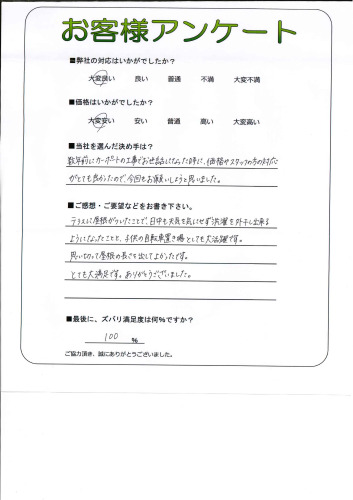 お客様アンケート
■弊社の対応はいかがでしたか？
大変良い 良い 普通 不満 大変不満
■価格はいかがでしたか？
大変安い 安い 普通 高い 大変高い
■当社を選んだ決め手は？
数年前にカーポートの工事でお世話になった時に、価格やスタッフの方の対応
がとても良かったので、今回もお願いしようと思いました。
■ご感想・ご要望などをお書き下さい。
テラスに屋根がついたことで、日中も天気を気にせず洗濯を外干し出来る
ようになったことと、子供の自転車置き場としても大活躍です。
思い切って屋根の長さを出してよかったです。
とても大満足です。ありがとうございました。
■最後に、ズバリ満足度は何％ですか？
100 ％
ご協力頂き、誠にありがとうございました。